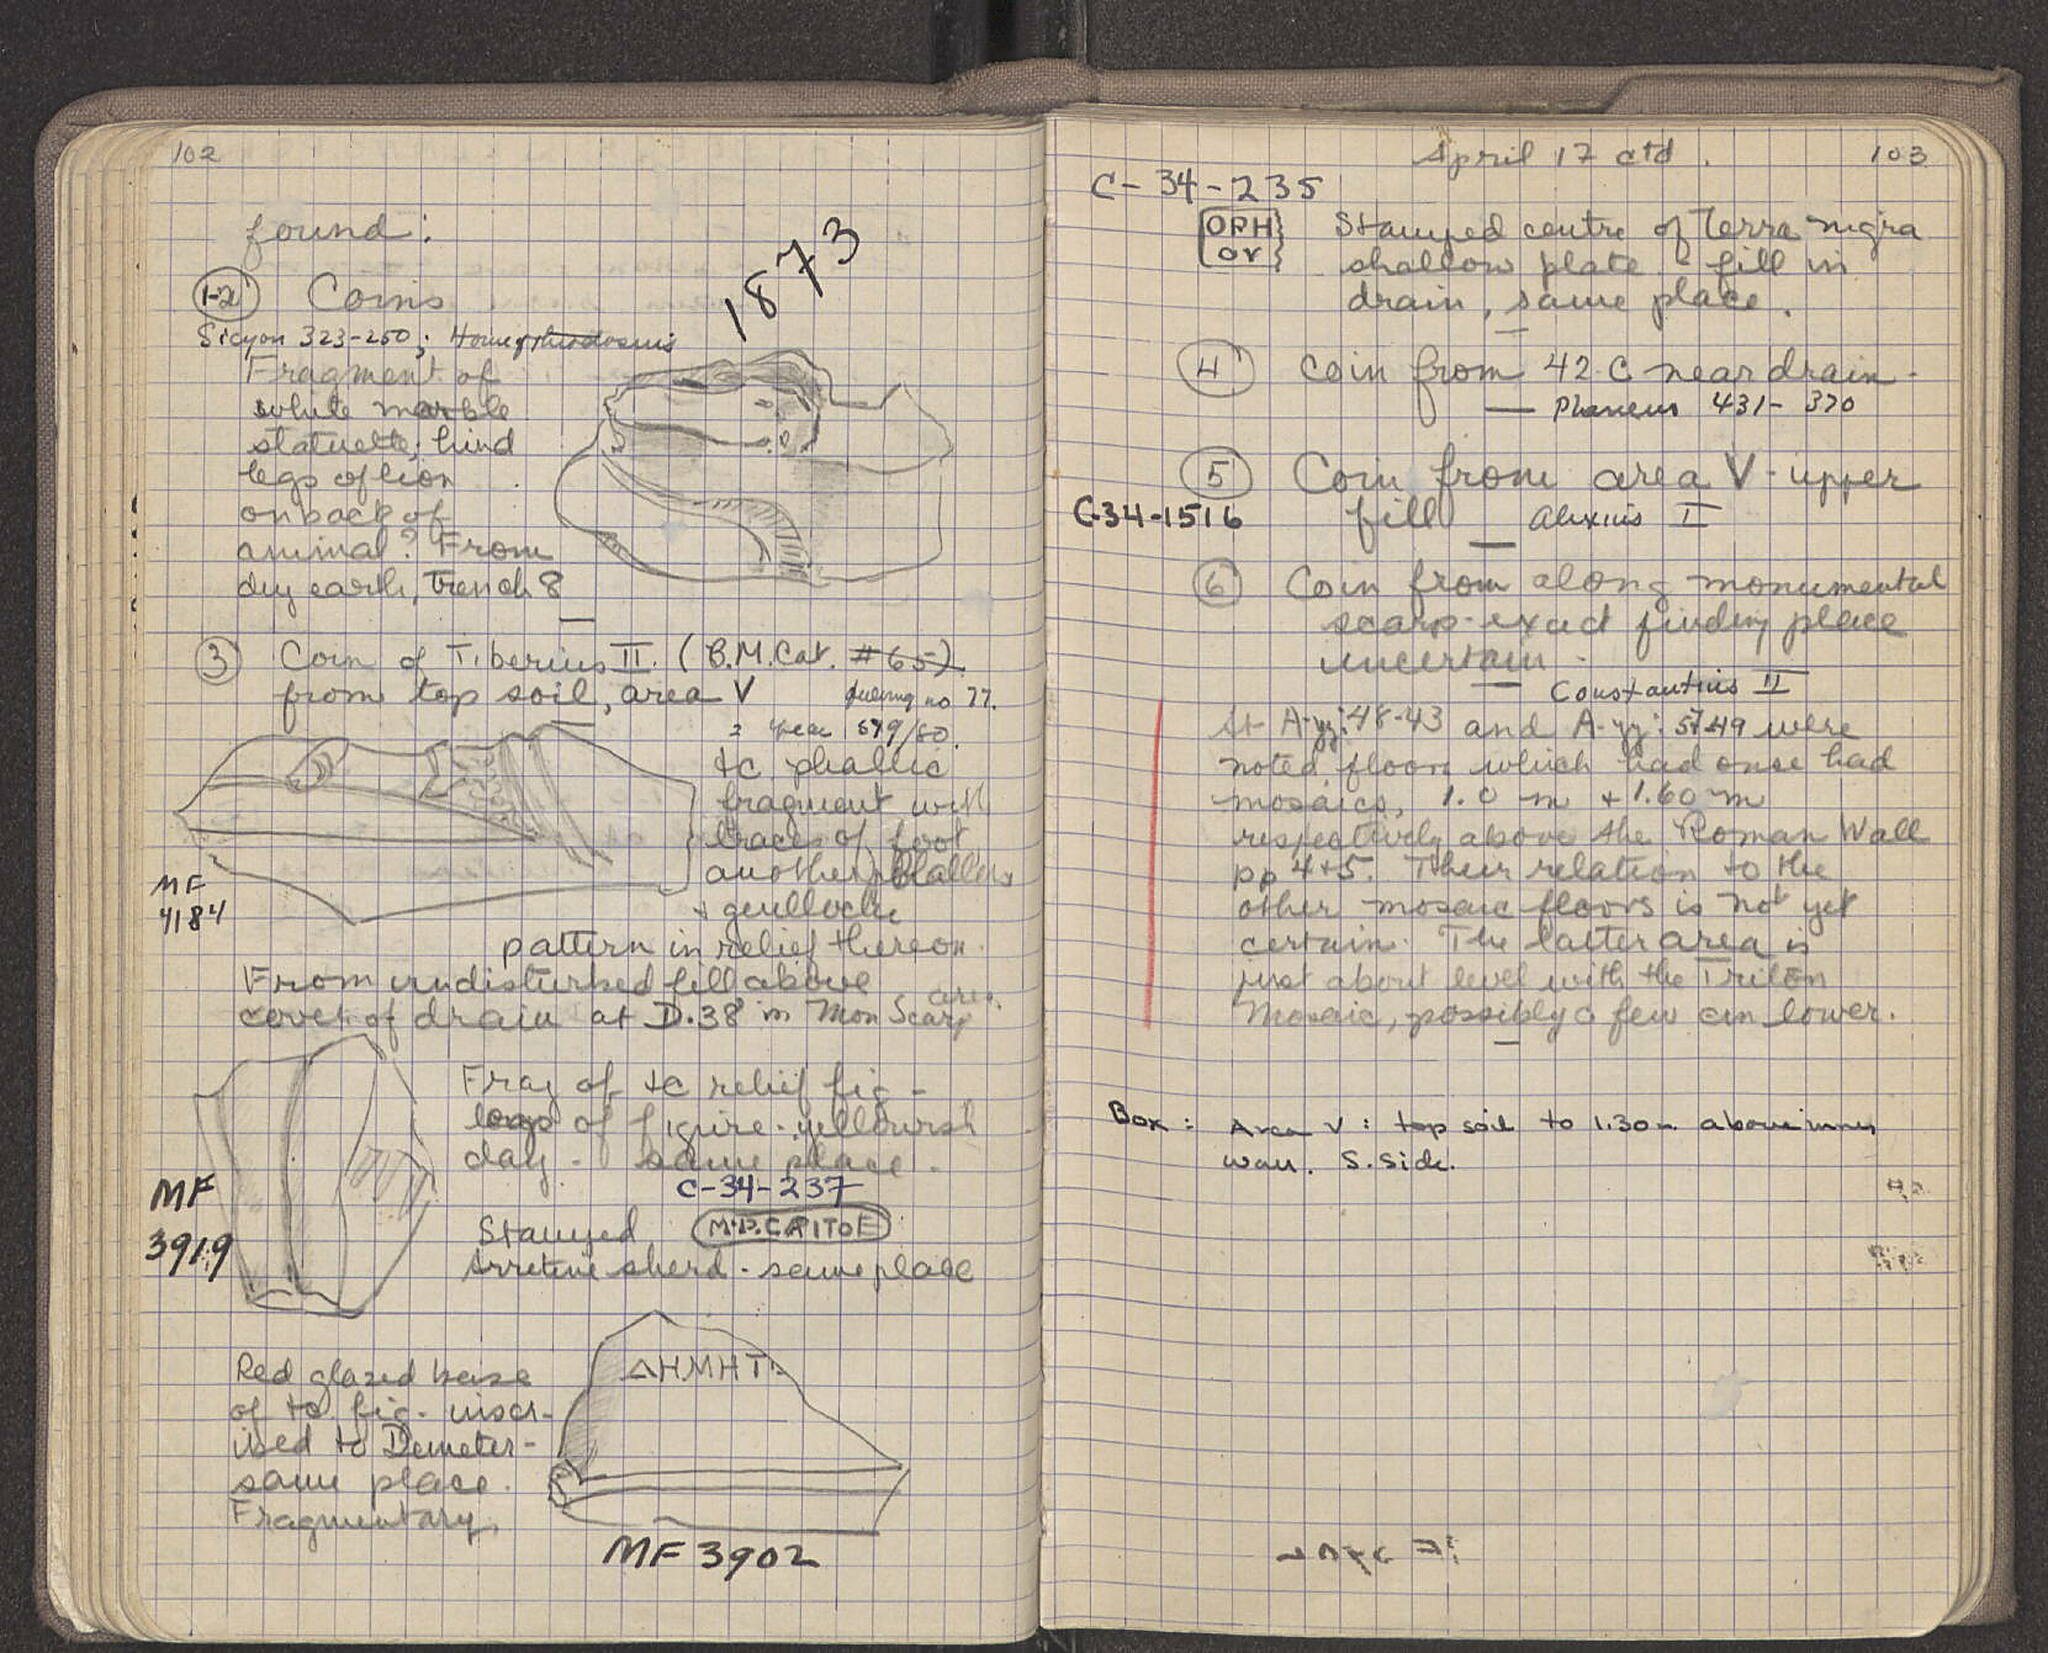 102
found:
1-2 Coins
1873
Sicyon 323-250; House of Theodosius
Fragment of
white marble
statuette; hind
legs of lion
on back of
animal? From
dry earth, Trench 8
3 Coin of Tiberius II. (B.M. Cat. #65)
from top soil, area V
no 77.
= year 579/80.
tc phallic
fragment with
traces of foot
another phallus
+ guilloche
pattern in relief thereon.
MF
4184
From undisturbed fill above
cover of drain at D.38 in Mon Scarp
area.
Frag of tc relief fig -
legs of figure - yellowish
clay - same place.
MF
3919
C-34-237
Stamped M.P.CAPITOE
Arretine sherd - same place
Red glazed base
of tc fig. inscr-
ibed to Demeter -
same place.
Fragmentary.
ΔHMHT
MF 3902
April 17 ctd. 103
C-34-235
OPH
OY
Stamped centre of Terra nigra
shallow plate - fill in
drain, same place.
4 Coin from 42.C near drain -
Phaneus 431-370
5 Coin from area V - upper
C-34-1516 fill Alexius I
6 Coin from along monumental
scarp - exact finding place
uncertain.
Constantius II
At A-yy: 48-43 and A-yy: 57-49 were
noted floors which had once had
mosaics, 1.0 m + 1.60 m
respectively above the Roman Wall
pp 4+5. Their relation to the
other mosaic floors is not yet
certain. The latter area is
just about level with the Triton
Mosaic, possibly a few cm lower.
Box: Area V: top soil to 1.30 m. above inner
wall. S. side.